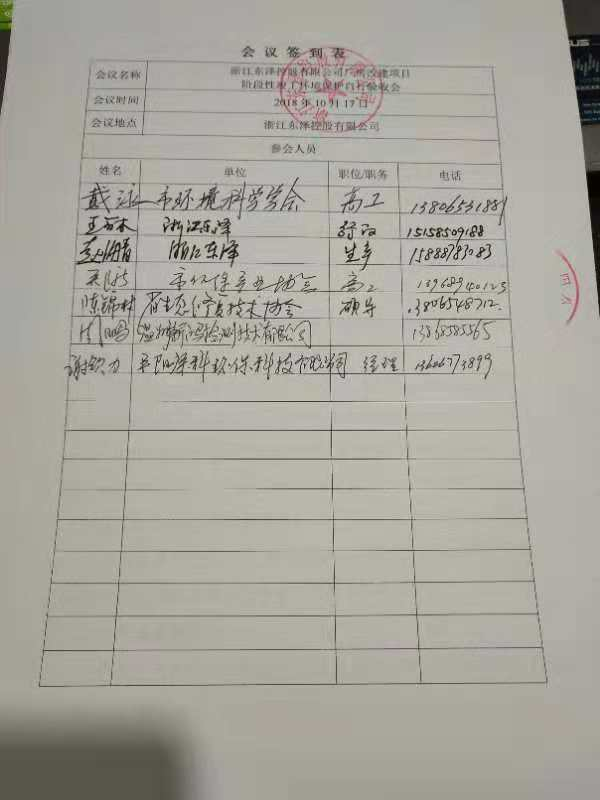 会议签到表
会议名称 浙江东泽控股有限公司厂房改建项目
阶段性竣工环境保护自行验收会
会议时间 2018年10月17日
会议地点 浙江东泽控股有限公司
参会人员
姓名 单位 职位/职务 电话
戴 市环境科学学会 高工 13806531881
浙江东泽 15158509188
浙江东泽 生产 15888783083
市环保产业协会 高工 13968940123
陈锦林 省生态修复技术协会 硕导 13806548712
检测技术有限公司 13868585565
谢钦力 科环保科技有限公司 经理 13606773899